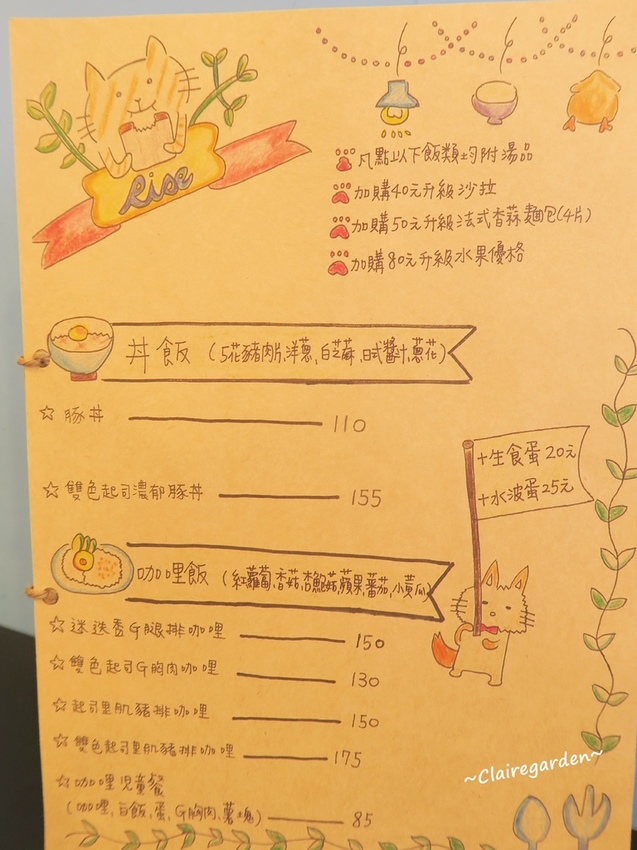 Rise
凡點以下飯類均附湯品
加購40元升級沙拉
加購50元升級法式香蒜麵包(4片)
加購80元升級水果優格
丼飯 (5花豬肉片,洋蔥,白芝麻,日式醬汁,蔥花)
豚丼 110
雙色起司濃郁豚丼 155
+生食蛋20元
+水波蛋25元
咖哩飯 (紅蘿蔔,香菇,杏鮑菇,蘋果,番茄,小黃瓜)
迷迭香G腿排咖哩 150
雙色起司G胸肉咖哩 130
起司里肌豬排咖哩 150
雙色起司里肌豬排咖哩 175
咖哩兒童餐
(咖哩,白飯,蛋,G胸肉,薯塊) 85
~Clairegarden~